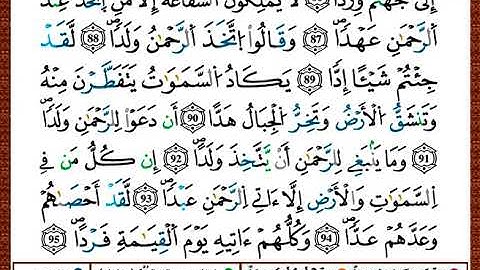 إِلَىٰ جَهَنَّمَ وِرْدًا لَا يَمْلِكُونَ الشَّفَاعَةَ إِلَّا مَنِ اتَّخَذَ عِندَ
اَلرَّحْمَٰنِ عَهْدًا 87 وَقَالُوا اتَّخَذَ الرَّحْمَٰنُ وَلَدًا 88 لَّقَدْ
جِئْتُمْ شَيْـًٔا إِدًّا 89 يَكَادُ السَّمَٰوَٰتُ يَتَفَطَّرْنَ مِنْهُ
وَتَنشَقُّ الْأَرْضُ وَتَخِرُّ الْجِبَالُ هَدًّا 90 أَن دَعَوْا لِلرَّحْمَٰنِ وَلَدًا
91 وَمَا يَنۢبَغِے لِلرَّحْمَٰنِ أَنْ يَّتَّخِذَ وَلَدًا 92 إِن كُلُّ مَن فِے
اِلسَّمَٰوَٰتِ وَالْأَرْضِ إِلَّا ءَاتِے الرَّحْمَٰنِ عَبْدًا 93 لَّقَدْ أَحْصَىٰهُمْ
وَعَدَّهُمْ عَدًّا 94 وَكُلُّهُمْ ءَاتِيهِ يَوْمَ الْقِيَٰمَةِ فَرْدًا 95